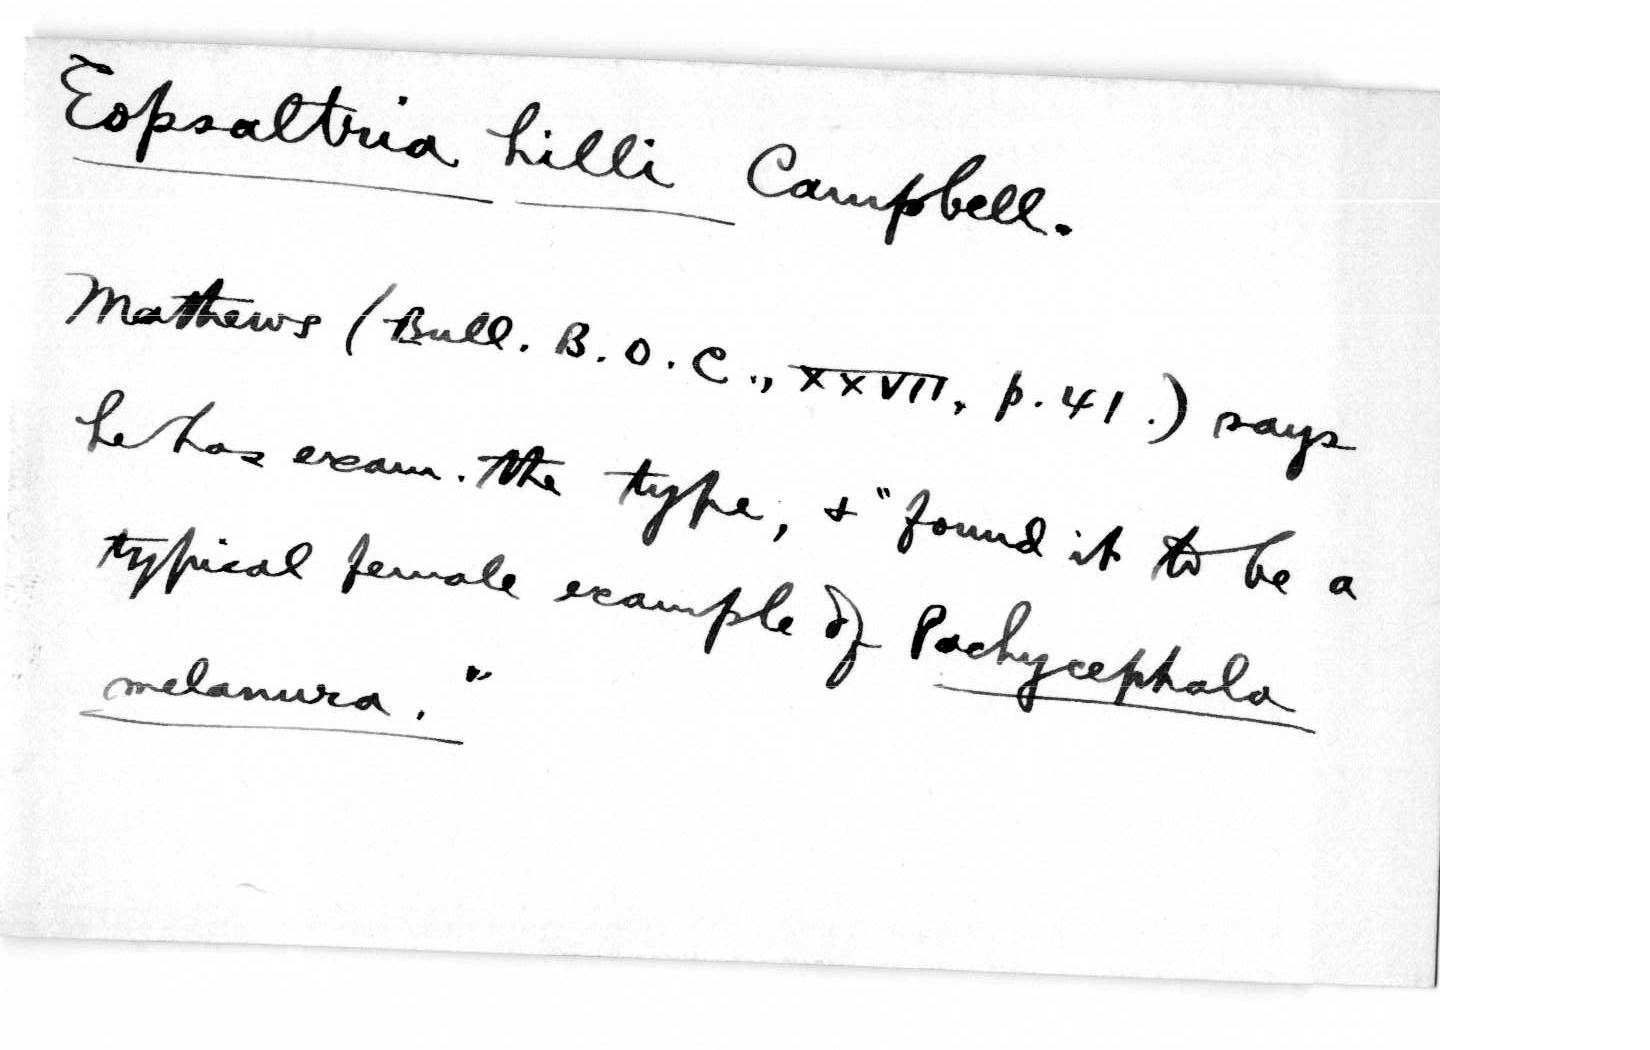 Eopsaltria hilli Campbell.
Mathews (Bull. B.O.C., XXVII, p. 41.) says
he has exam. the type, & "found it to be a
typical female example of Pachycephala
melanura."